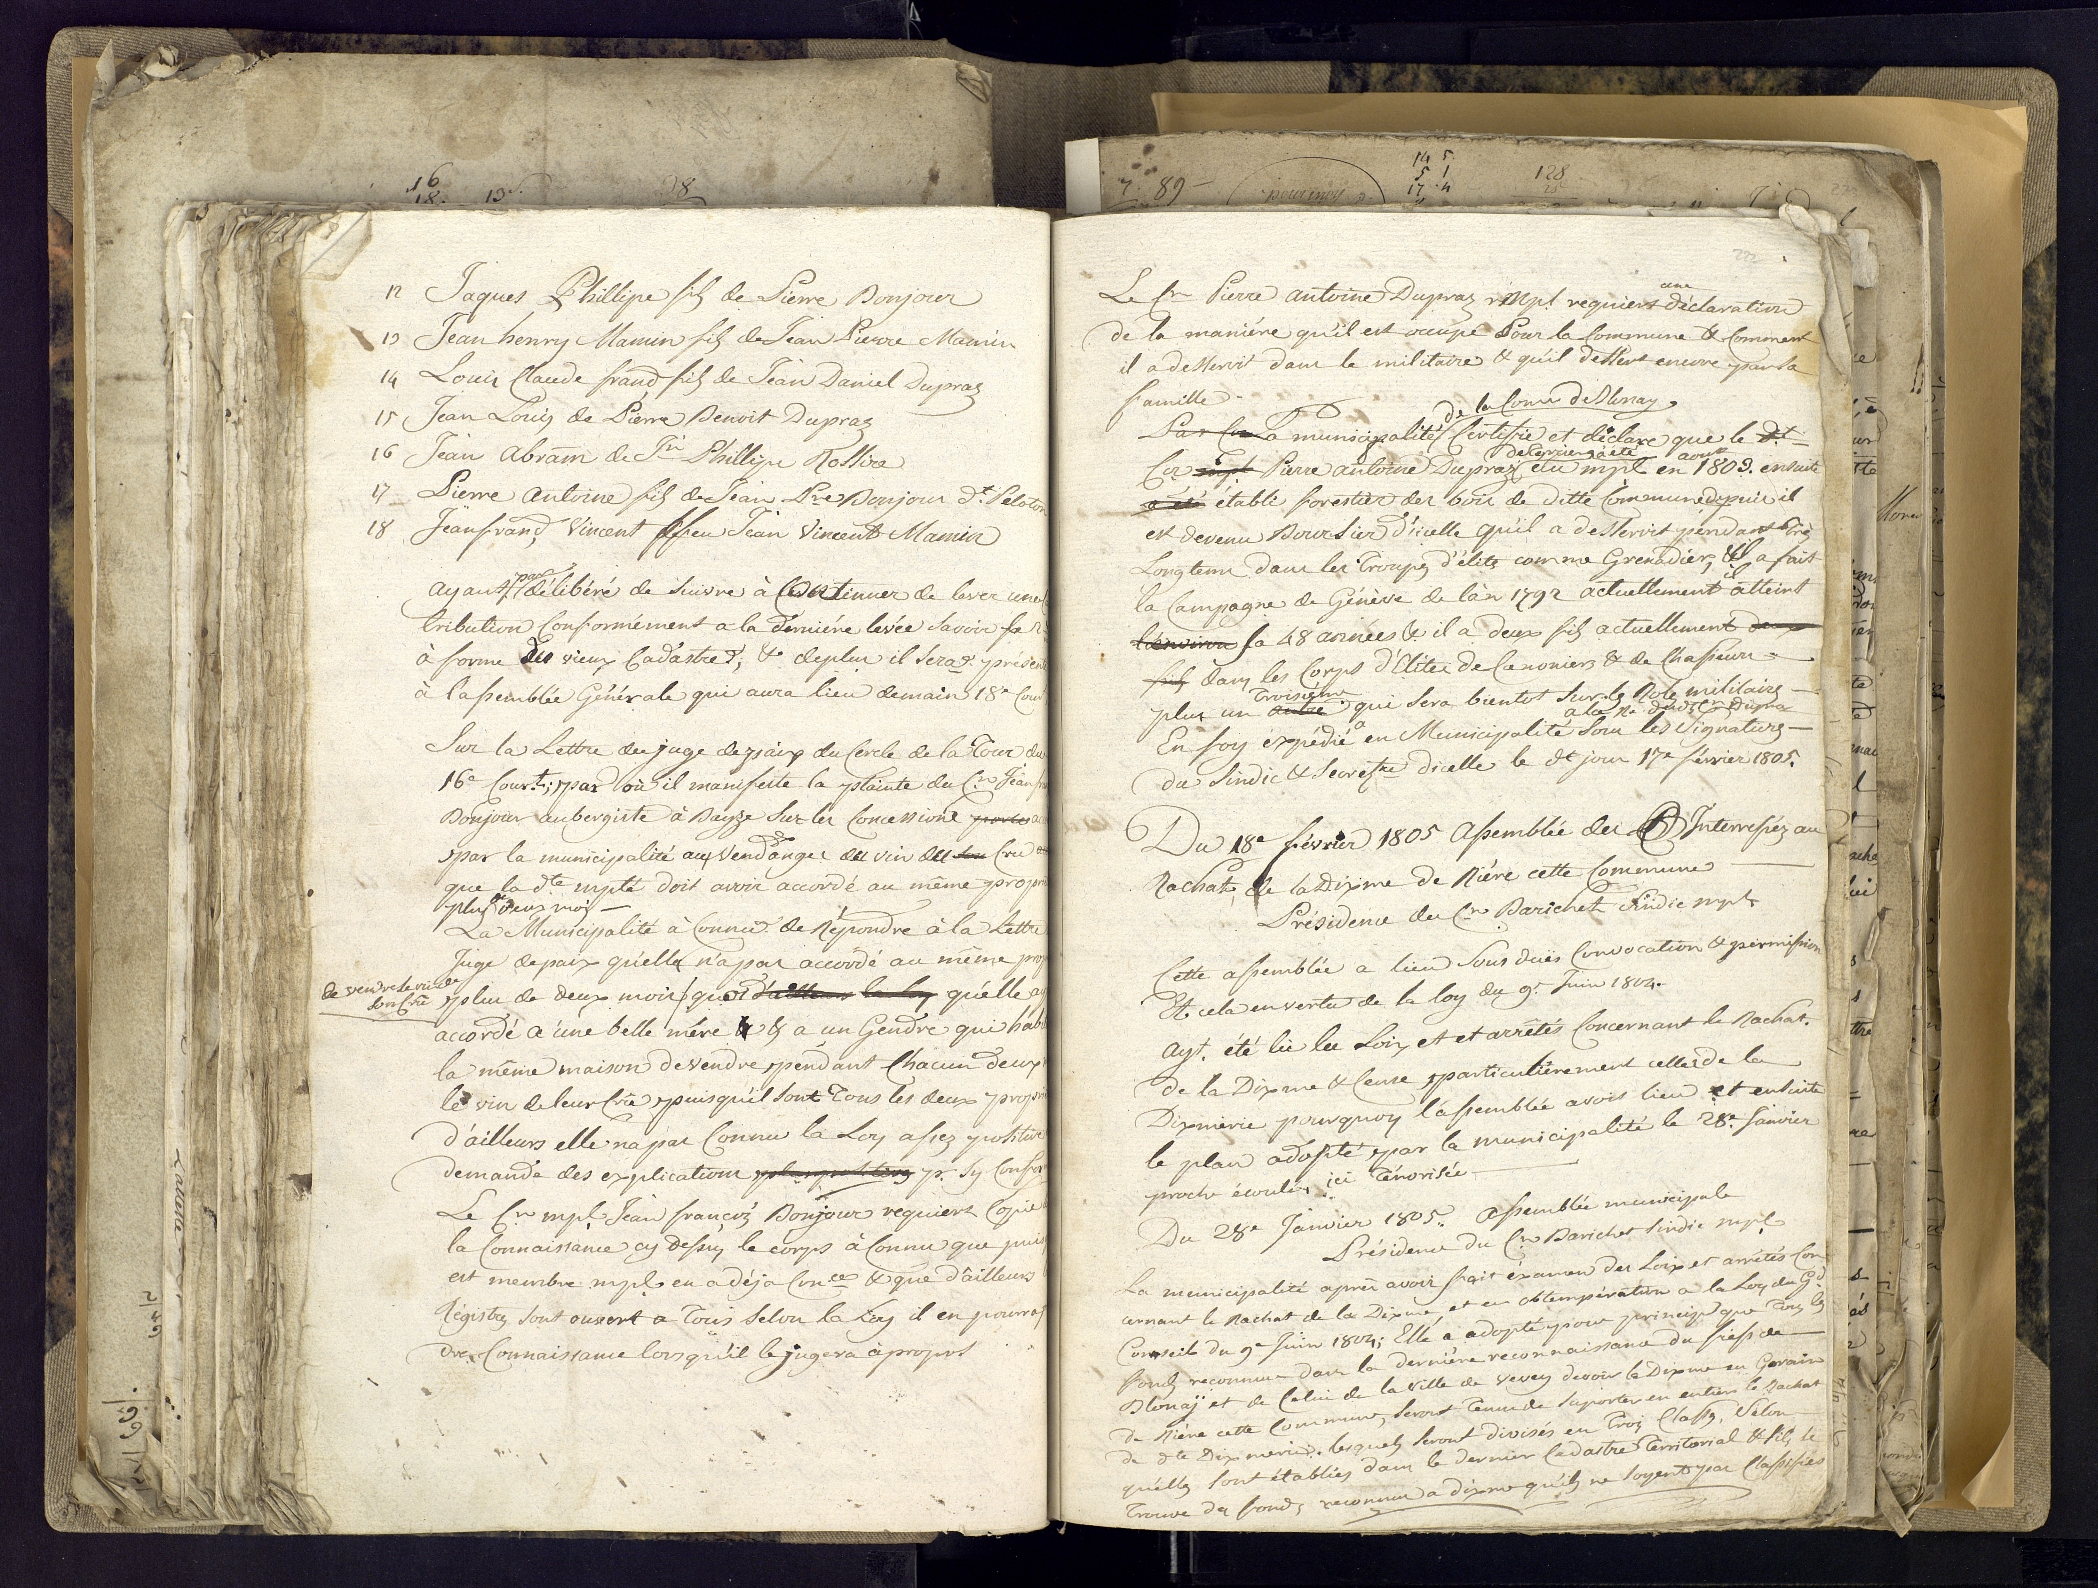 12 Jaques Phillipe fils de Pierre Bonjour
13 Jean henry Mamin fils de Jean Pierre Mamin
14 Louis Claude frand fils de Jean Daniel Dupraz
15 Jean Louis de Pierre Benoit Dupraz
16 Jean Abram de Jn Phillipe
17 Pierre Antoine fils de Jean Pre Bonjour dt Peloton
18 Jean frand Vincent ffeu Jean Vincent Mamin
Ayant par délibéré de suivre à Continuer de lever une
tribution Conformément a la derniére levée Savoir
à forme des vieux Cadastres, & de plus il sera présen
à l'assemblée Générale qui aura lieu demain 18e Cour
Sur la Lettre du juge de paix du Cercle de la Tour du
16e Court; par où il manifeste la plainte du Cn Jean
Bonjour aubergiste à Bayze Sur les Concessions
par la municipalité aux Vendanges du vin du Cru
que la dte mpté doit avoir accordé au même propri
plus deux mois
La Municipalité à Connu de Répondre à la Lettre
Juge de paix qu'elle n'a pas accordé au même prop
de vendre le vin de son Crû
plus de deux mois, que d'ailleurs la loy qu'elle
accordé a une belle mére & a un Gendre qui hab
la même maison de vendre pendant Chacun deux
le vin de leur Crû puisqu'il sont Tous les deux propri
d'ailleurs elle n'a pas Connu la Loy assez positive
demande des explications plus positives pr. sy Confor
Le Cn mpl Jean françois Bonjour requiert Copie
la Connaissance cy dessus, le corps à Connu que puis
est membre mpl. en a déja Conce & que d'ailleurs
Régistres sont ouvert a Tous selon la Loy il en pourra
dre Connaissance lorsqu'il le jugera à propos
7 89
16
18
19
98
14 5
5 1
17 4
128
222
Le Cn Pierre Antoine Dupraz mpl requiert une déclaration
de la maniére qu'il est occupé Pour la Commune & Comment
il a desservit dans le militaire & qu'il dessert encore par sa
famille
La municipalité de la Come de Blonay Certifie et déclare que le dt
Cer mpl Pierre Antoine Dupraz élu mpl en aout 1803. ensuite
a été établi forestier des bois de ditte Commune depuis il
est devenu Boursier d'icelle qu'il a desservit pendant Très
Longtems dans les Troupes d'élite comme Grenadier, & il a fait
la Campagne de Génève de l'an 1792 actuellement il atteint
l'environ sa 48 années & il a deux fils actuellement deux
fils dans les Corps d'Elites de Canoniers & de Chasseurs
plus un Autre Troisiéme qui sera bientot sur le Role militaire
En foy expédié en Municipalité Sous les Signatures
du Sindic & Secretre dicelle le dt jour 17e février 1805.
Du 18e février 1805 Assemblée des Interressés au
Rachat, de la Dixme de Riére cette Commune
Présidence du Cn Barichet Sindic mpl
Cette assemblée a lieu Sous dües Convocation & permission
Et cela en vertu de la loy du 9e Juin 1804.
Ayt. été lu les Loix et et arrêtés Concernant le Rachat.
de la Dixme & Cense particuliérement celles de la
Dixmerie pourquoy l'assemblée avoit lieu et ensuite
le plan adopté par la municipalité le 28e Janvier
proche écoulé, ici Ténorisée
Du 28e Janvier 1805. Assemblée municipale
Présidence du Cn Barichet Sindic mpl
La municipalité après avoir fait éxamen des Loix et arrêtés Con
cernant le Rachat de la Dixme, et en obtempération a la Loy du Gd
Conseil du 9e Juin 1804; Elle a adopté pour principe que Tous les
fonds reconnus dans la derniére reconnaissance du fief de
Blonay et de Celui de la Ville de Vevey devoir la Dixme en Gerain
de Riére cette Commune, seront Tenu de suporter en entiers le Rachat
de dte Dixmerie. lesquels seront divisés en Trois Classes, Selon
qu'elles sont établies dans le dernier Cadastre Territorial & s'il se
Trouve des fonds reconnus a dixme qu'ils ne soyent pas Classifiés